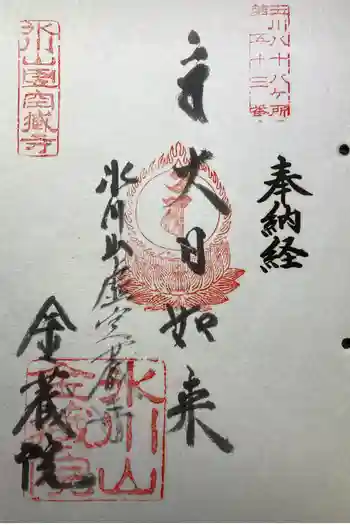 玉川八十八ヶ所
第五十三番
奉納経
大日如来
氷川山虚空蔵寺
金蔵院
氷川山虚空藏寺
氷川山
金蔵院